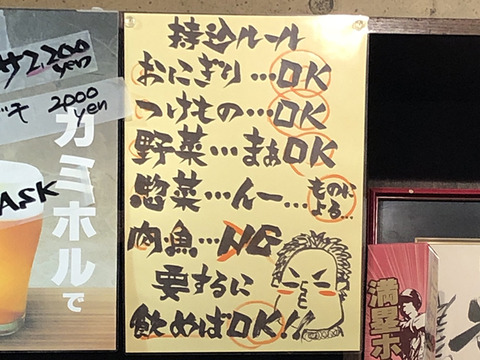 持込ルール
おにぎり…OK
つけもの…OK
野菜…まぁOK
惣菜…んー…ものによる…
肉魚…NG
要するに
飲めばOK!!
2,200
yen
2000
yen
ASK
カミホルで
満塁ホ